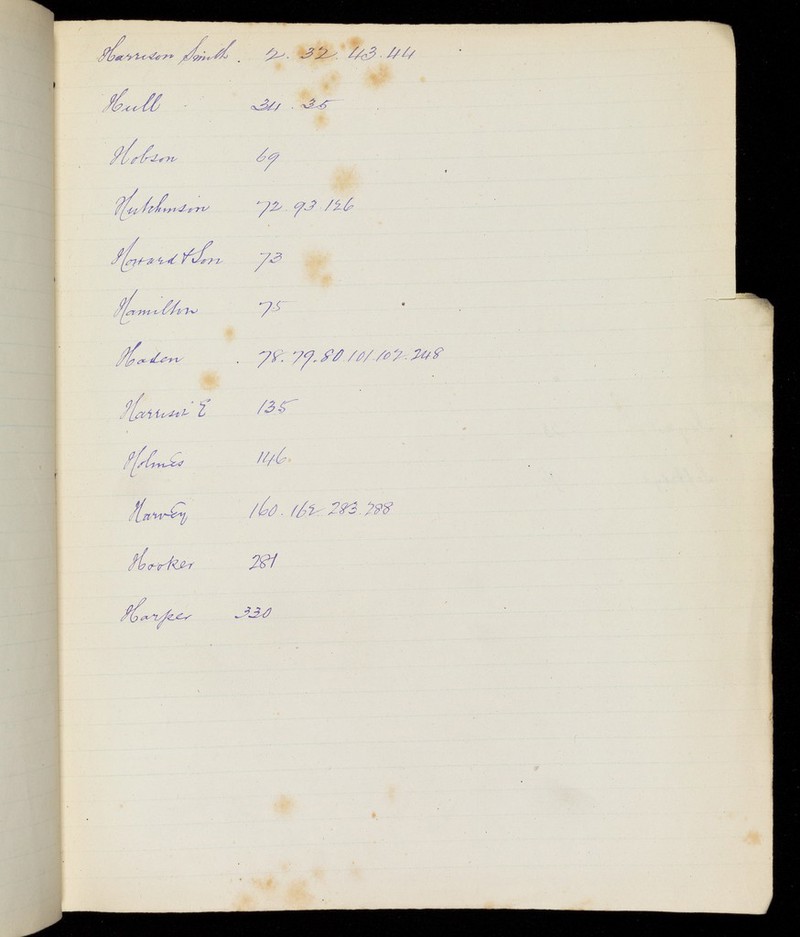 Harrison Smith. 2. 32. 43. 44
Hull 34. 35
Hobson 69
Hutchinson 72. 93. 126
Howard & Son 73
Hamilton 75
Haden 78. 79. 80. 101. 102. 248
Harrison E 135
Holmes 146.
Harvey 160. 162. 283. 288
Hooker 281
Harper 330